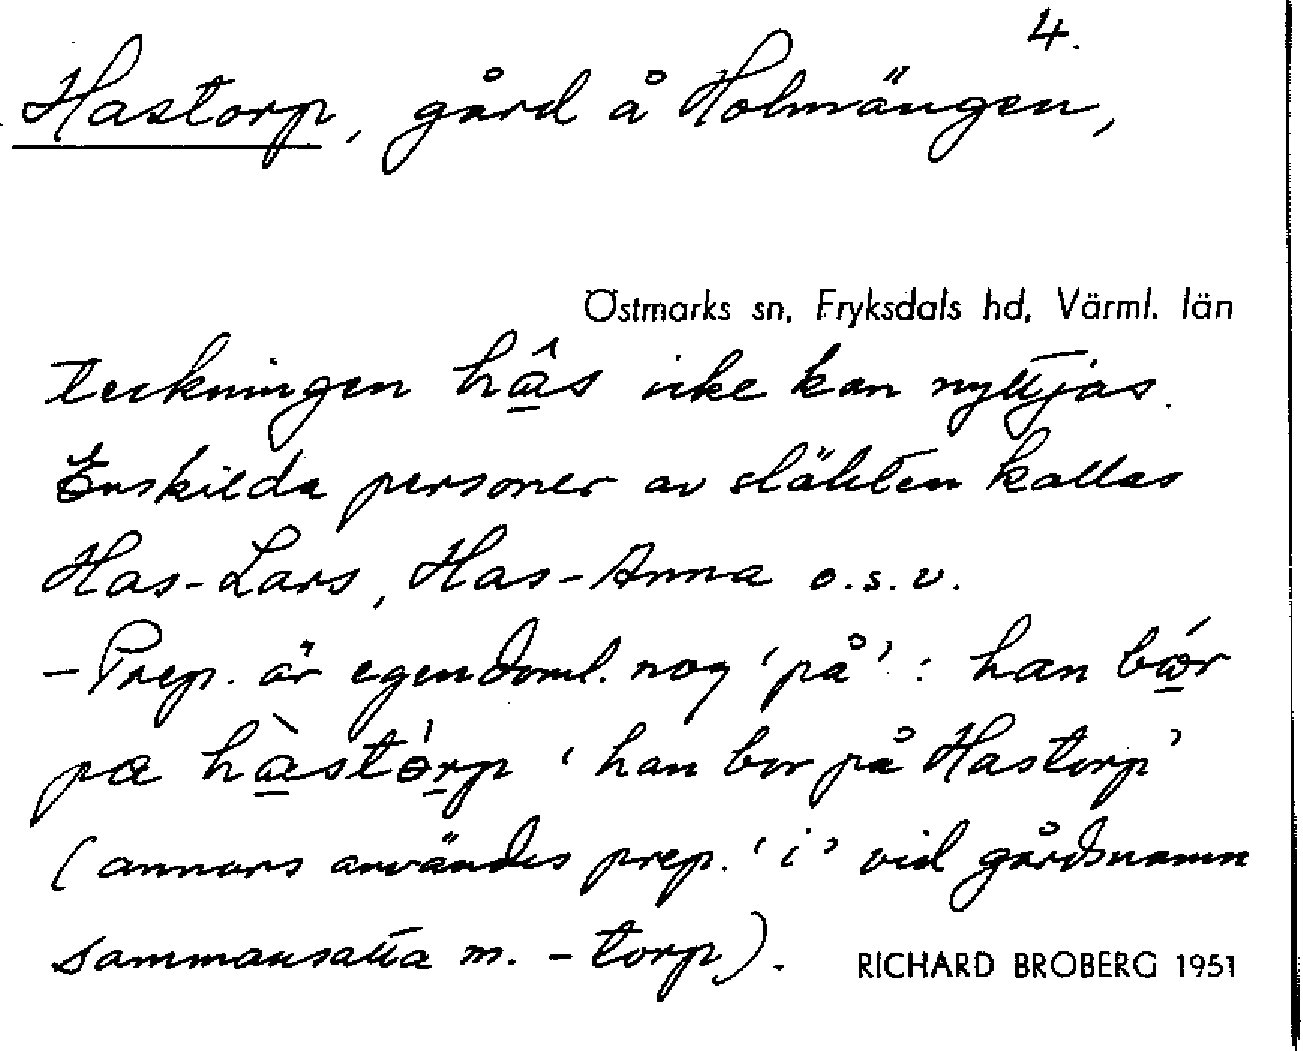 4.
Hastorp, gård å Holmängen,
Östmarks sn, Fryksdals hd, Värml. län
teckningen hâ̲s icke kan nyttjas.
Enskilda personer av släkten kallas
Has-Lars, Has-Anna o.s.v.
- Prep. är egendoml. nog 'på': han
pa hà̲stó̲rp 'han bor på Hastorp'
(annars användes prep. 'i' vid gårdsnamn
sammansatta m. -torp).
RICHARD BROBERG 1951